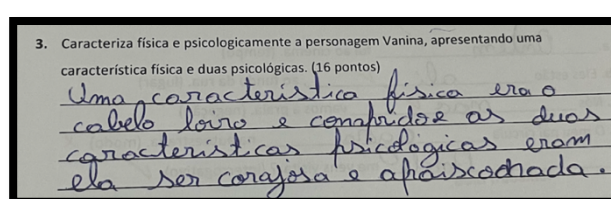 3. Caracteriza física e psicologicamente a personagem Vanina, apresentando uma
característica física e duas psicológicas. (16 pontos)
Uma característica física era o
cabelo loiro e comprido e as duas
características psicológicas eram
ela ser corajosa e apaiscoada.